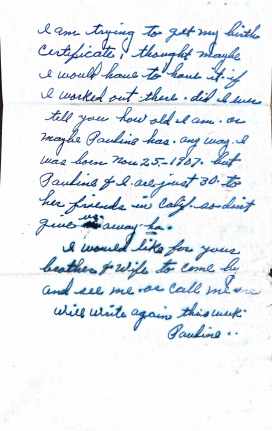 I am trying to get my birth
certificate, thought maybe
I would have to have it. if
I worked out there. did I ever
tell you how old I am. or
maybe Pauline has. any way. I
was born Nov 25-1907. but
Pauline & I are just 30. to
her friends in Calif. so don't
give us away ha.
I would like for your
brother & wife to come by
and see me. or call me
will write again this week.
Pauline..